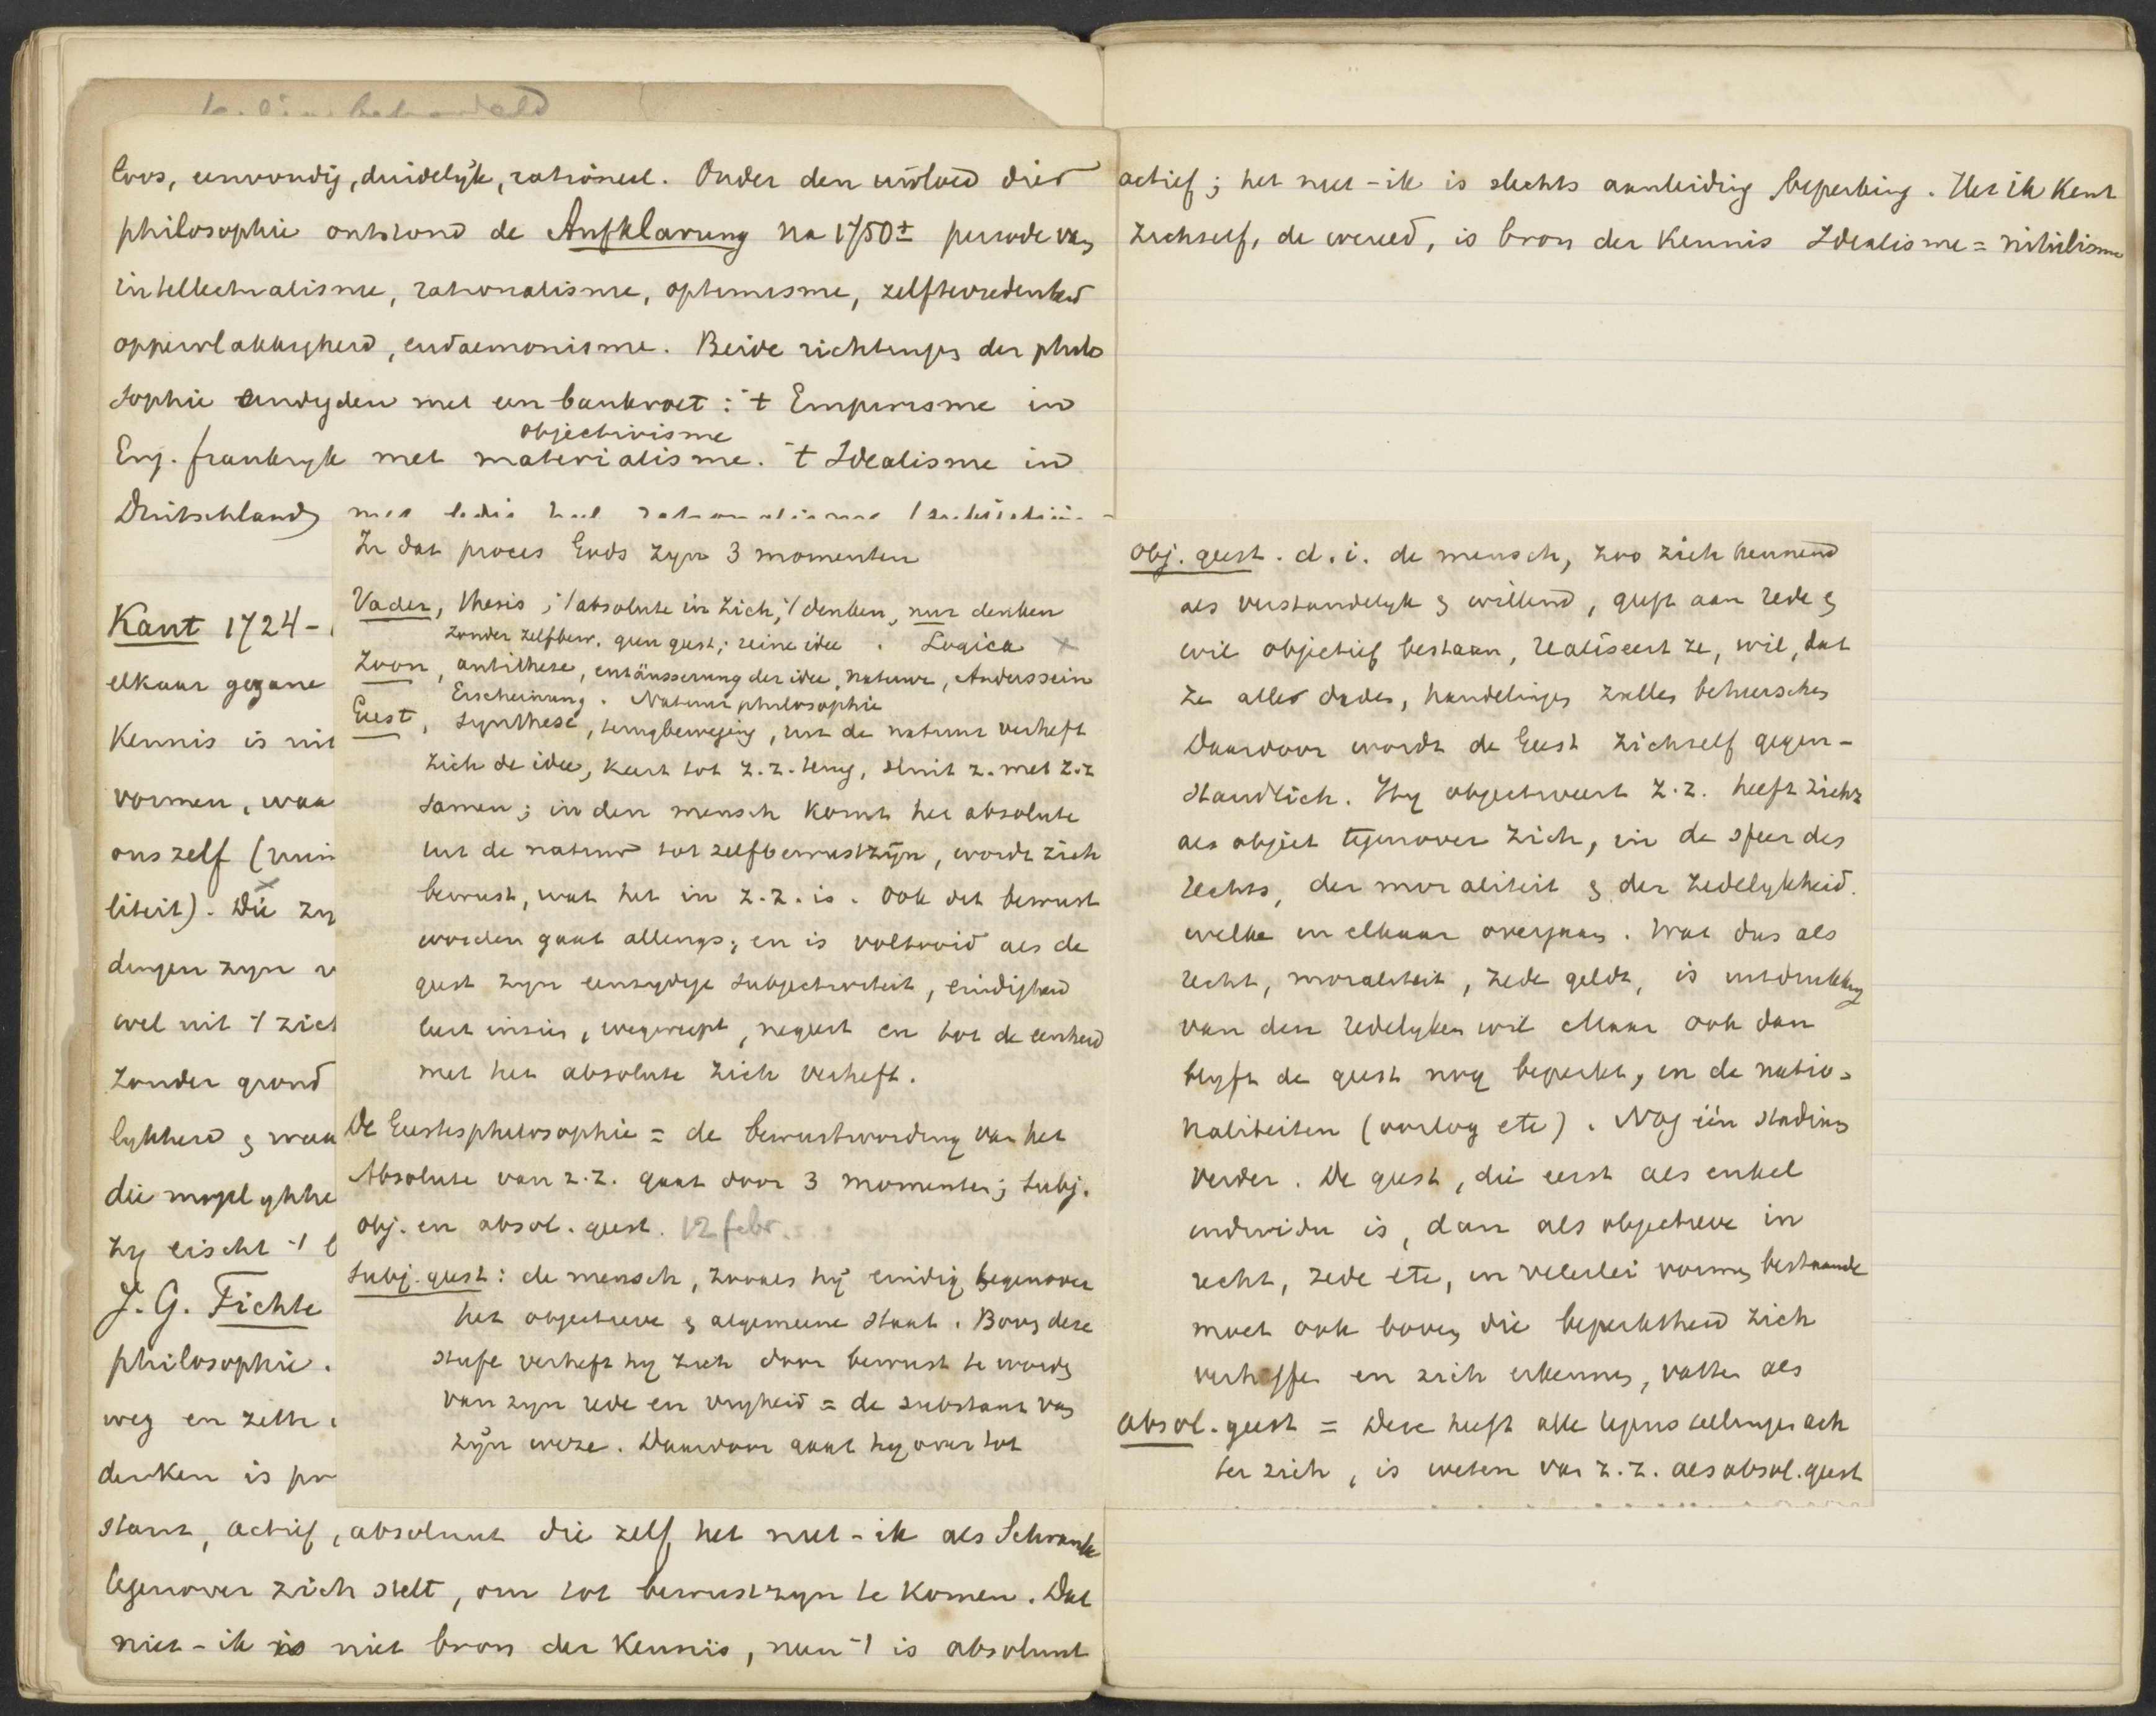 loos, eenvoudig, duidelijk, rationeel. Onder den invloed dier
philosophie ontstond de Aufklarung na 1750± periode van
intellectualisme, rationalisme, optimisme, zelftevredenheid
oppervlakkigheid, eudaemonisme. Beide richtingen der philo
sophie eindigden met een bankroet: 't Empirisme in
objectivisme
Eng. frankryk met materialisme. 't Idealisme in
Duitschland
Kant 1724-
elkaar gegane
Kennis is nit
vormen, waa
ons zelf (ruim
liteit). Die zy
dingen zyn
wel uit 't zich
Zonder grond
lykheid & waa
die mogelykhe
Zy eischt 't
J. G. Fichte
philosophie.
weg en zette
denken is pr
stant, actief, absoluut die zelf het niet-ik als Schranke
tegenover zich stelt, om tot bewustzyn te komen. Dat
niet-ik is niet bron der Kennis, neen 't is absoluut
In dat proces Gods zyn 3 momenten
Vader, thesis; 't absolute in zich, 't denken, nur denken
zonder zelfbew. geen geest; reine idee. Logica x
Zoon, antithese, entäusserung der idee, natuur, Anderssein
Erscheinung. Natuurphilosophie
Geest, synthese, terugbeweging, uit de natuur verheft
zich de idee, keert tot z.z. terug, sluit z. met z.z
samen; in den mensch komt het absolute
uit de natuur tot zelfbewustzijn, wordt zich
bewust, wat het in z.z. is. Ook dit bewust
worden gaat allengs; en is voltooid als de
geest zyn eenzydige subjectiviteit, eindigheid
leert inzien, wegwerpt, negeert en tot de eenheid
met het absolute zich verheft.
De Geestesphilosophie = de bewustwording van het
Absolute van z.z. gaat door 3 momenten; subj.
obj. en absol. geest. 12 febr.
Subj. geest: de mensch, zooals hij eindig tegenover
het objectieve & algemeene staat. Boven deze
stufe verheft hy zich door bewust te worden
van zyn rede en vryheid = de substant van
zijn weze. Daardoor gaat hy over tot
actief; het niet-ik is slechts aanleiding beperking. Het ik kent
zichzelf, de wereld, is bron der Kennis Idealisme = nihilisme
obj. geest. d.i. de mensch, zoo zich kennend
als verstandelyk & willend, geeft aan rede &
wil objectief bestaan, realiseert ze, wil, dat
ze alle daden, handelingen zullen beheerschen
Daardoor wordt de Geest zichzelf gegen-
standlich. Hy objectiveert z.z. heeft zichz
als object tegenover zich, in de sfeer des
rechts, der moraliteit & der zedelykheid.
welke in elkaar overgaan. Wat dus als
recht, moraliteit, zede geldt, is uitdrukking
van den redelyken wil Maar ook dan
blyft de geest nog beperkt, en de natio=
naliteiten (oorlog etc). Nog één stadium
verder. De geest, die eerst als enkel
individu is, dan als objectieve in
recht, zede etc, in velerlei vormen bestaande
moet ook boven die beperktheid zich
verheffen en zich erkennen, vatten als
absol. geest = Deze heeft alle tegenstellingen ach
ter zich, is weten van z.z. als absol. geest